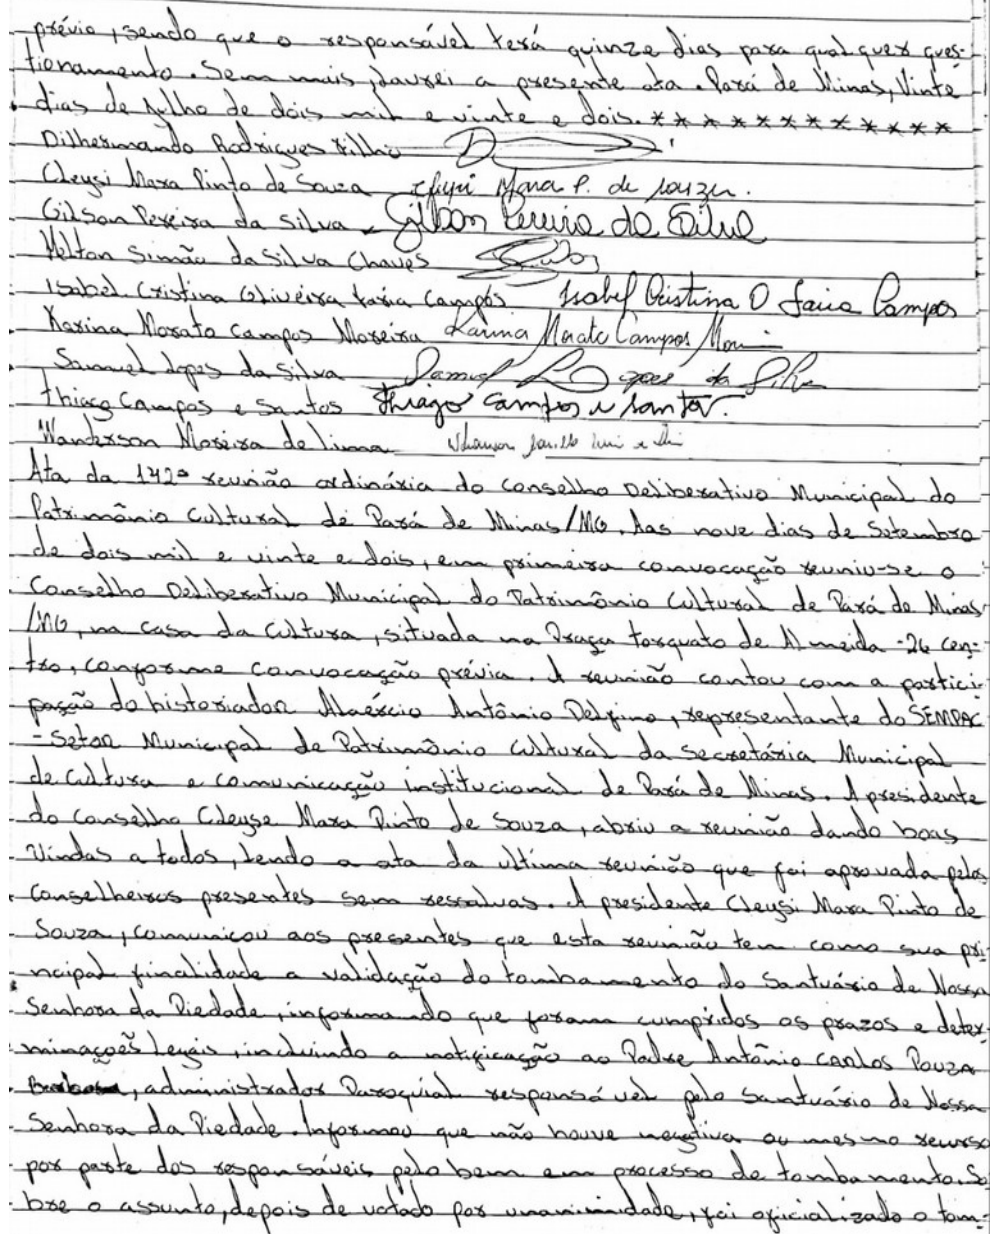 prévio, sendo que o responsável terá quinze dias para qualquer ques-
tionamento. Sem mais, lavrei a presente ata. Pará de Minas, Vinte
dias de Julho de dois mil e vinte e dois. * * * * * * * * * * * *
Dilhermando Rodrigues Filho
Cleysi Mara Pinto de Souza Cleysi Mara P. de Souza.
Gilson Pereira da Silva Gilson Pereira da Silva
Helton Simão da Silva Chaves
Isabel Cristina Oliveira Faria Campos Isabel Cristina O Faria Campos
Karina Morato Campos Moreira Karina Morato Campos
Samuel Lopes da Silva Samuel Lopes da Silva
Thiago Campos e Santos Thiago Campos e Santos.
Wanderson Moreira de Lima
Ata da 142ª reunião ordinária do Conselho Deliberativo Municipal do
Patrimônio Cultural de Pará de Minas/MG. Aos nove dias de Setembro
de dois mil e vinte e dois, em primeira convocação reuniu-se o
Conselho Deliberativo Municipal do Patrimônio Cultural de Pará de Minas
/MG, na casa da Cultura, situada na Praça Torquato de Almeida -26 cen-
tro, conforme convocação prévia. A reunião contou com a partici
pação do historiador Alaércio Antônio Delfino, representante do SEMPAC
- Setor Municipal de Patrimônio Cultural da Secretária Municipal
de Cultura e comunicação institucional de Pará de Minas. A presidente
do Conselho Cleyse Mara Pinto de Souza, abriu a reunião dando boas
Vindas a todos, lendo a ata da última reunião que foi aprovada pelos
Conselheiros presentes sem ressalvas. A presidente Cleysi Mara Pinto de
Souza, comunicou aos presentes que esta reunião tem como sua pri-
ncipal finalidade a validação do tombamento do Santuário de Nossa
Senhora da Piedade, informando que foram cumpridos os prazos e deter
minações legais, incluindo a notificação ao Padre Antônio Carlos Pouza
, administrador Paroquial responsável pelo Santuário de Nossa
Senhora da Piedade. Informou que não houve negativa ou mesmo recurso
por parte dos responsáveis pelo bem em processo de tombamento. So
bre o assunto, depois de votado por unanimidade, foi oficializado o tom-